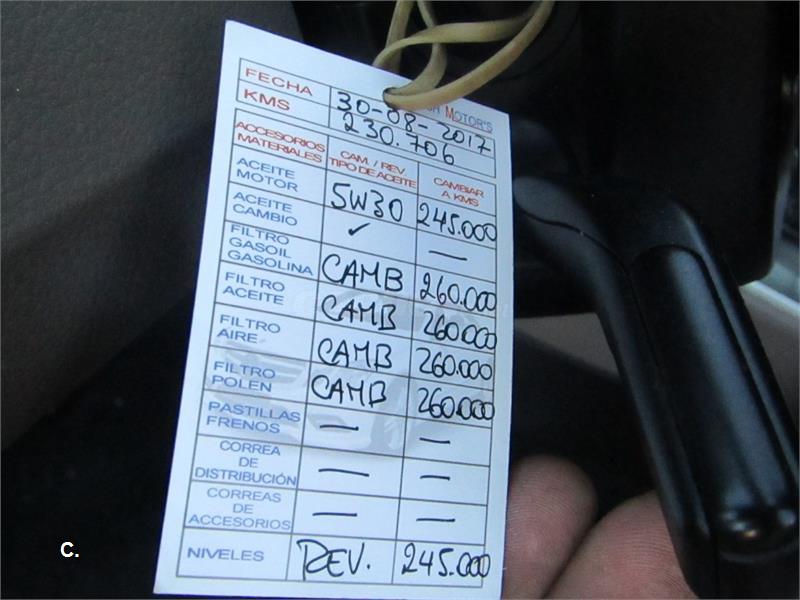 MOTOR'S
FECHA 30-08-2017
KMS 230.706
ACCESORIOS MATERIALES CAM. / REV. TIPO DE ACEITE CAMBIAR A KMS
ACEITE MOTOR 5W30 245.000
ACEITE CAMBIO ✓ —
FILTRO GASOIL GASOLINA CAMB 260.000
FILTRO ACEITE CAMB 260.000
FILTRO AIRE CAMB 260.000
FILTRO POLEN CAMB 260.000
PASTILLAS FRENOS — —
CORREA DE DISTRIBUCIÓN — —
CORREAS DE ACCESORIOS — —
NIVELES REV. 245.000
C.